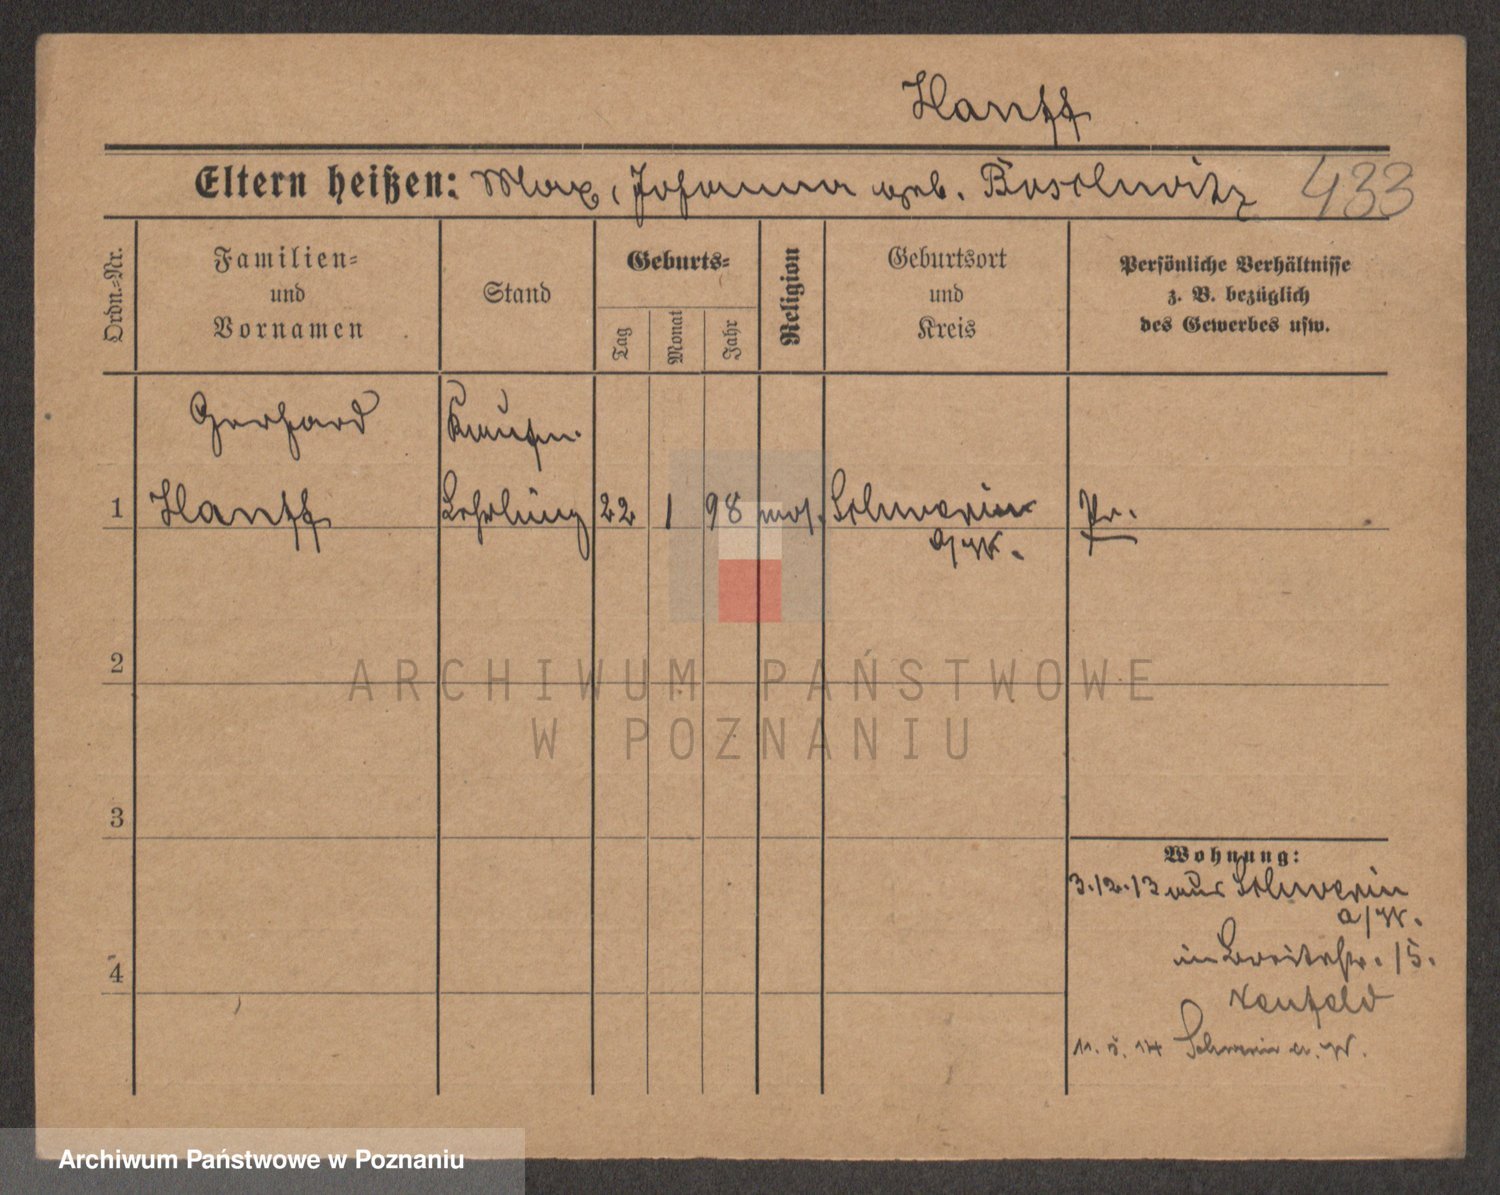 Hanff
Eltern heißen: Max, Johanna geb. Boschwitz 433
Ordn.-Nr.
Familien-
und
Vornamen
Stand
Geburts-
Tag
Monat
Jahr
Religion
Geburtsort
und
Kreis
Persönliche Verhältnisse
z. B. bezüglich
des Gewerbes usw.
Gerhard Kaufm.
1 Hanff Lehrling 22 1 98 mos. Schwerin Pr.
a/W.
2
ARCHIWUM PAŃSTWOWE
W POZNANIU
3
Wohnung:
3.12.13 aus Schwerin
a/W.
in 15.
4
Neufeld
11. 5. 14 Schwerin a. W.
Archiwum Państwowe w Poznaniu